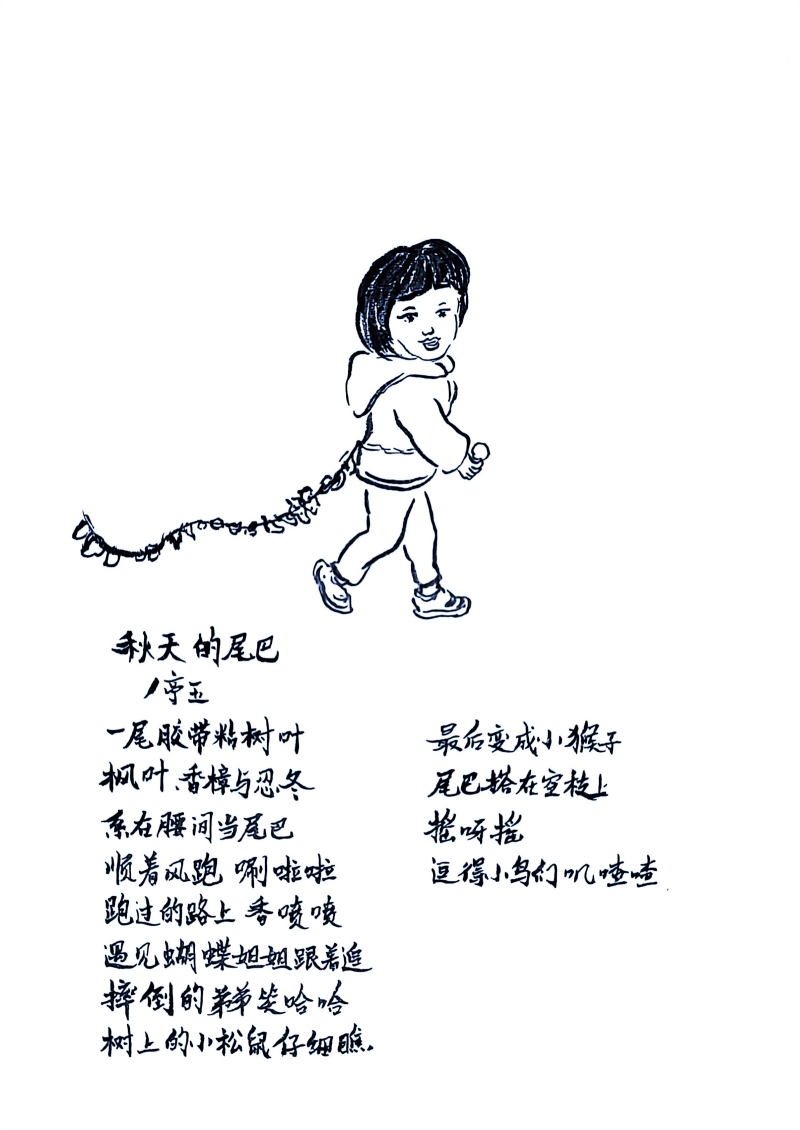 秋天的尾巴
/亭玉
一尾胶带粘树叶
枫叶、香樟与忍冬
系在腰间当尾巴
顺着风跑 唰啦啦
跑过的路上 香喷喷
遇见蝴蝶姐姐跟着追
摔倒的弟弟笑哈哈
树上的小松鼠仔细瞧.
最后变成小猴子
尾巴搭在空枝上
摇呀摇
逗得小鸟们叽喳喳